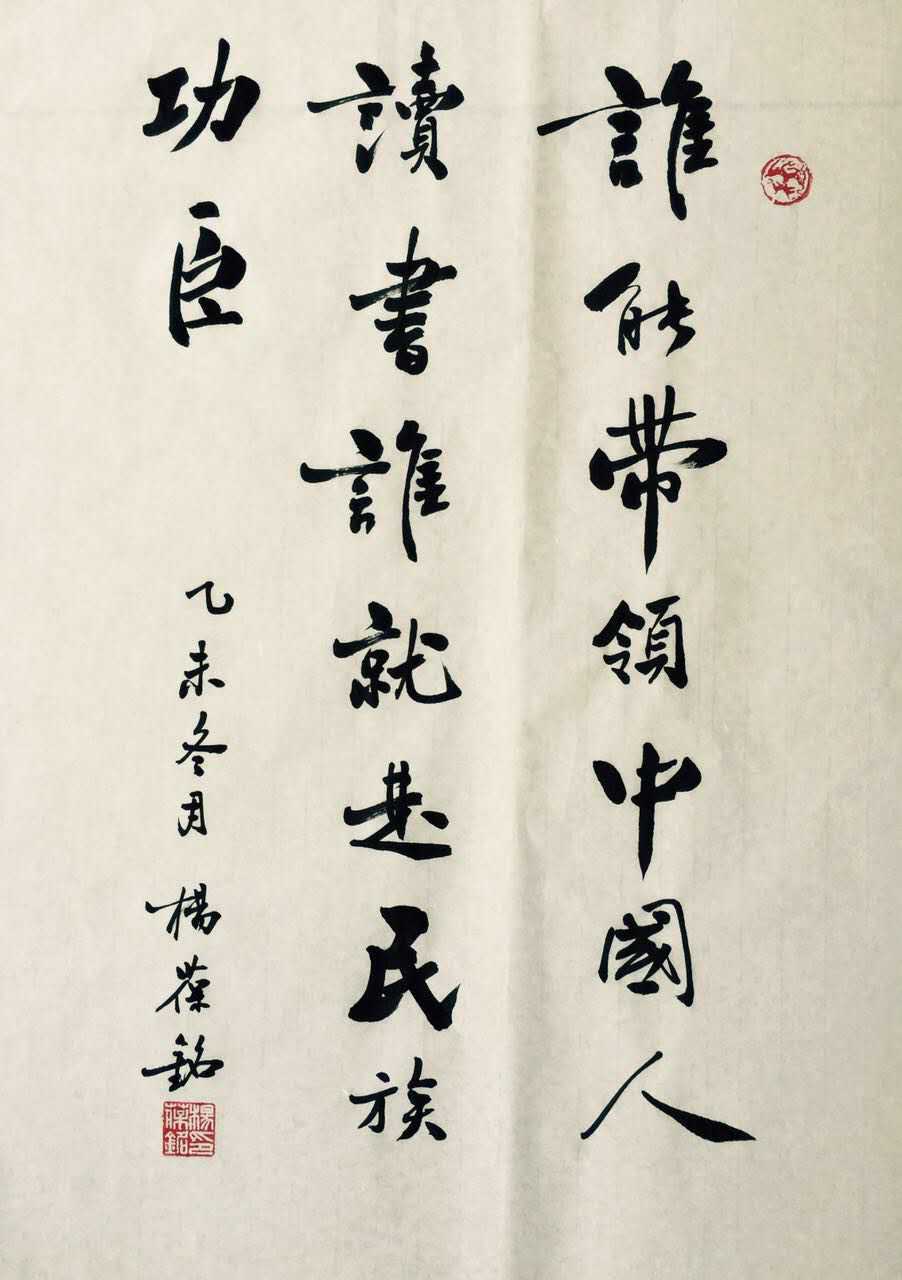 誰能帶領中國人
讀書誰就是民族
功臣
乙未冬月 楊葆銘
楊葆銘印